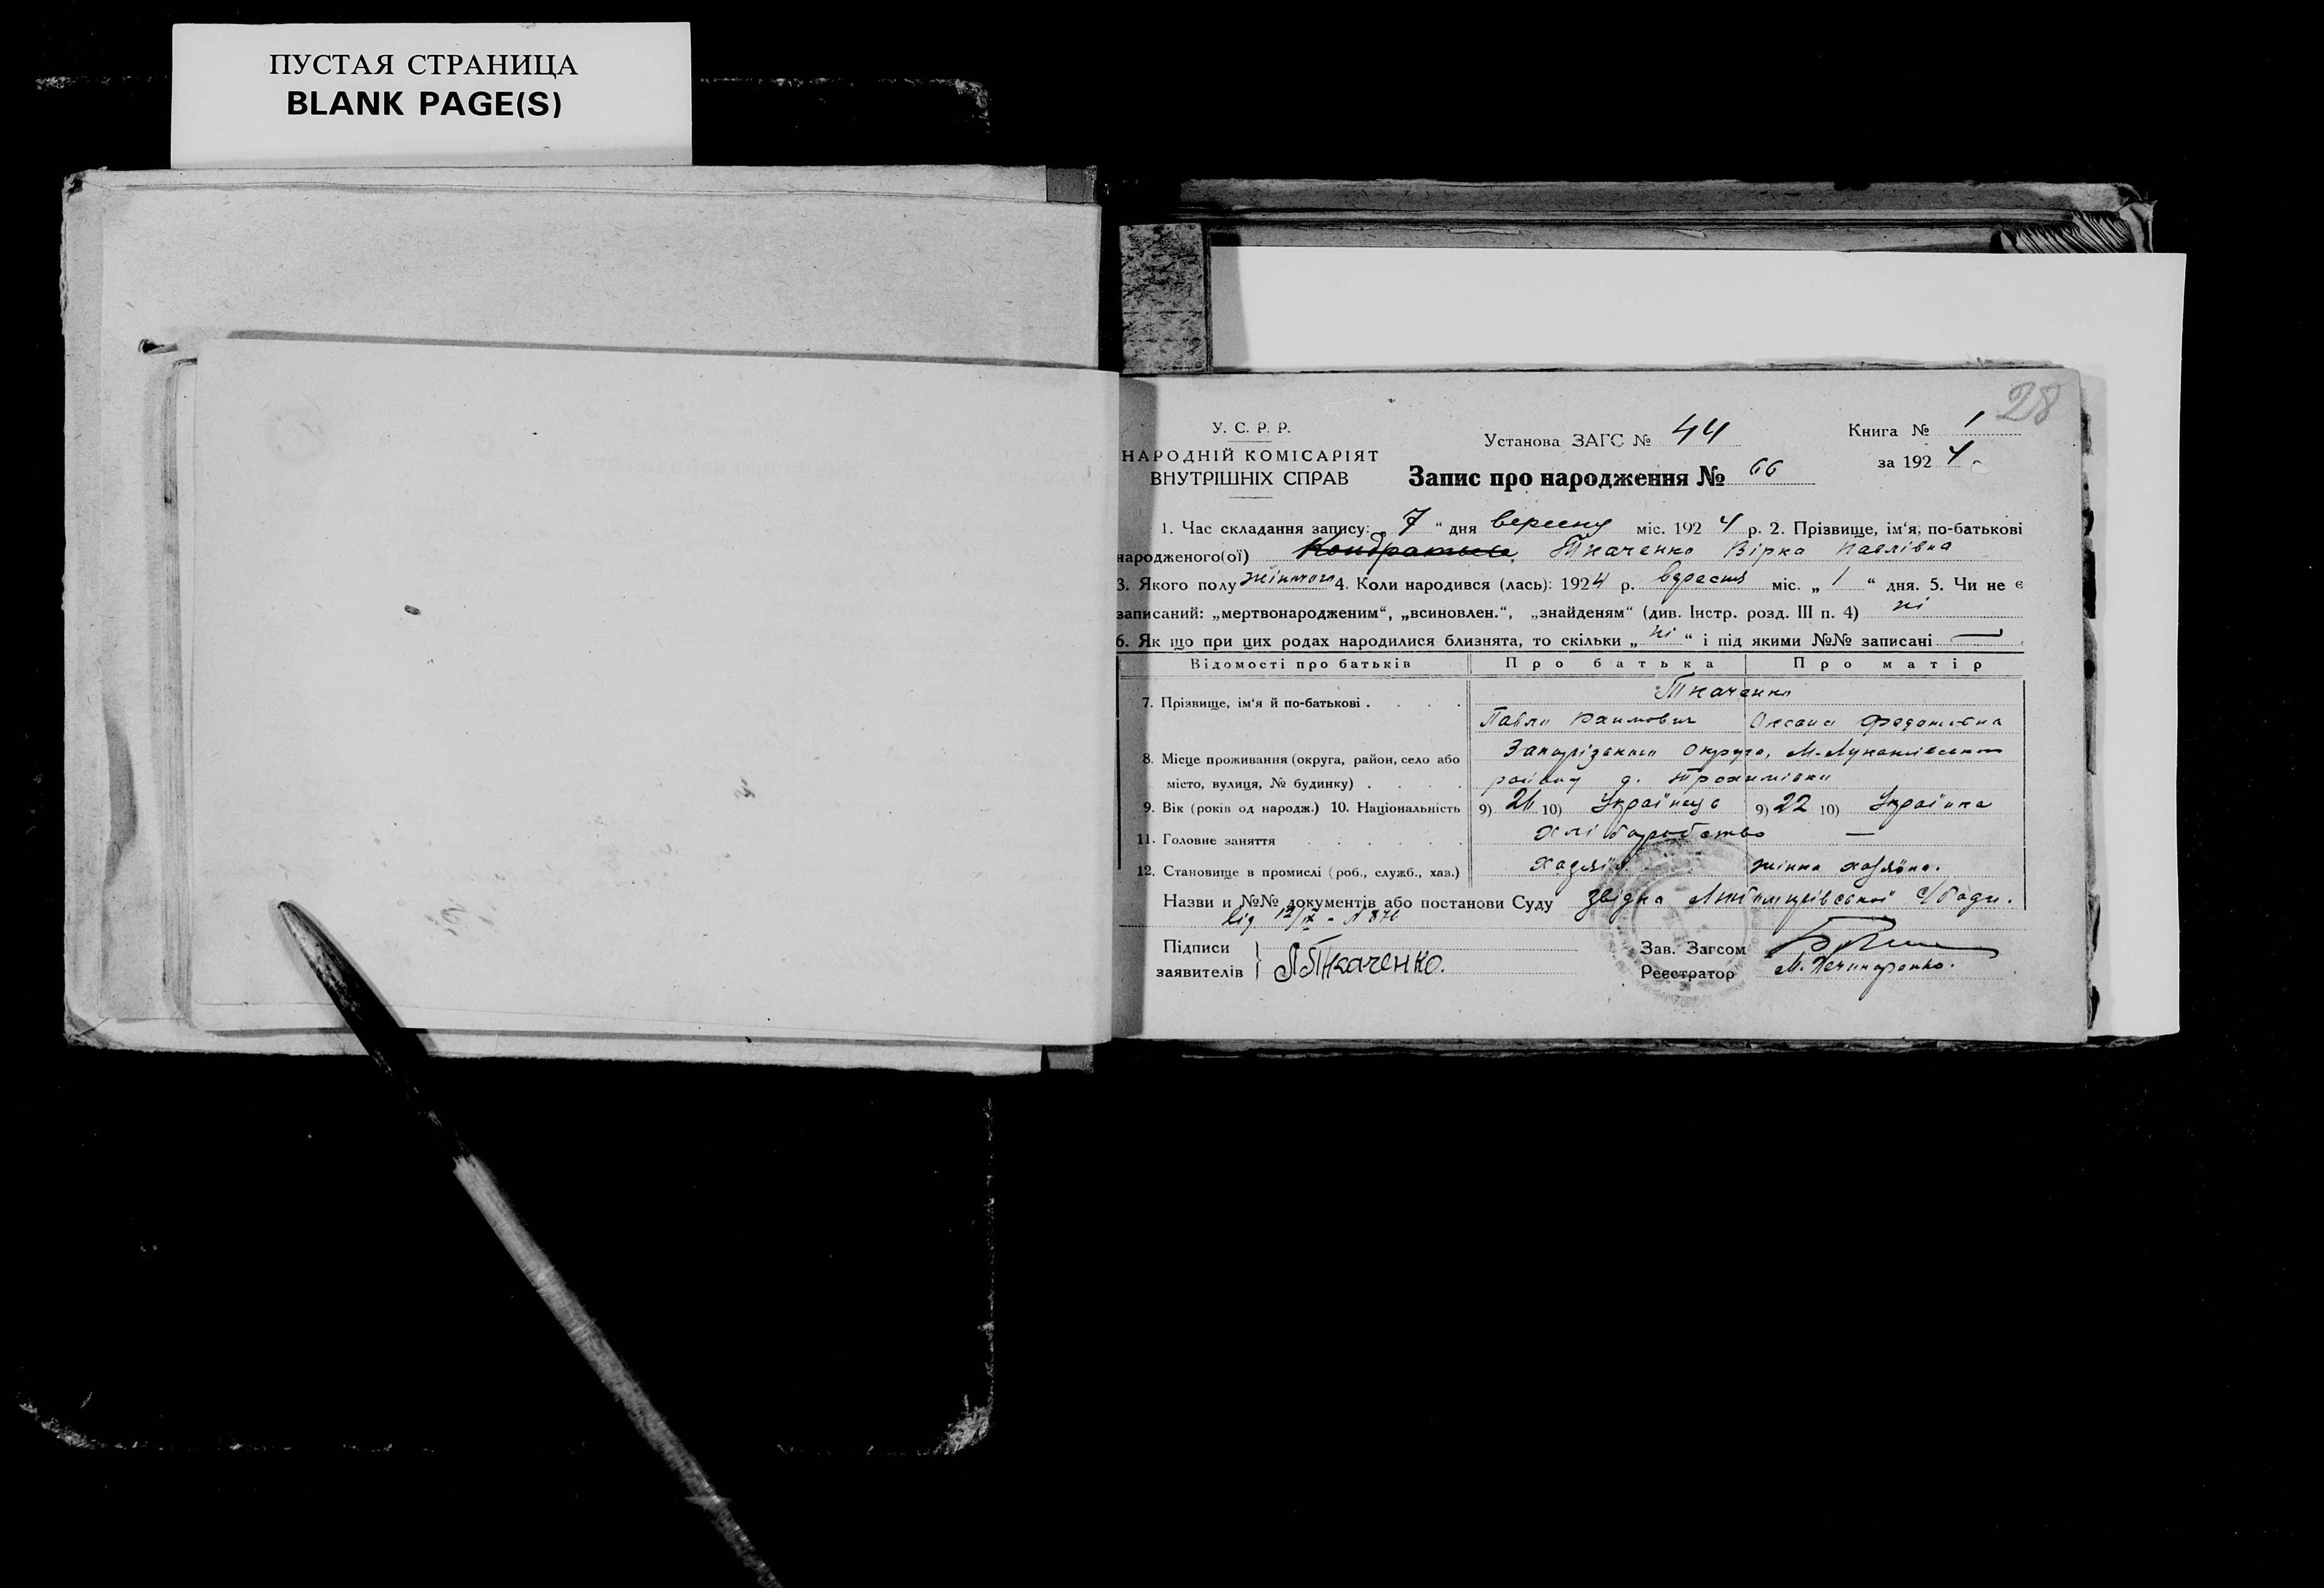 ПУСТАЯ СТРАНИЦА
BLANK PAGE(S)
28
У. С. Р. Р.
НАРОДНІЙ КОМІСАРІЯТ
ВНУТРІШНІХ СПРАВ
Установа ЗАГС № 44
Запис про народження № 66
Книга № 1
за 1924
1. Час складання запису: „ 7 “ дня вересня міс. 1924 р. 2. Прізвище, ім‘я, по-батькові
народженого(ої) Ткаченко Вірка Павлівна
3. Якого полу жіночого 4. Коли народився (лась): 1924 р. вересня міс. „ 1 “ дня. 5. Чи не є
записаний: „мертвонародженим“, „всиновлен.“, „знайденям“ (див. Інстр. розд. III п. 4) ні
6. Як що при цих родах народилися близнята, то скільки „ ні “ і під якими №№ записані —
Відомості про батьків Про батька Про матір
Ткаченко
7. Прізвище, ім‘я й по-батькові . . . . Павло Оксана Федотовна
8. Місце проживання (округа, район, село або Запорізького Округа,
місто, вулиця, № будинку) . . . . району
9. Вік (років од народж.) 10. Національність 9) 26 10) Українець 9) 22 10) Українка
11. Головне заняття . . . . . . хліборобство —
12. Становище в промислі (роб., служб., хаз.) хазяїн жінка хазяїна.
Назви и №№ документів або постанови Суду С/ради.
від № 876
Підписи
заявителів } П Ткаченко.
Зав. Загсом
Реєстратор М.